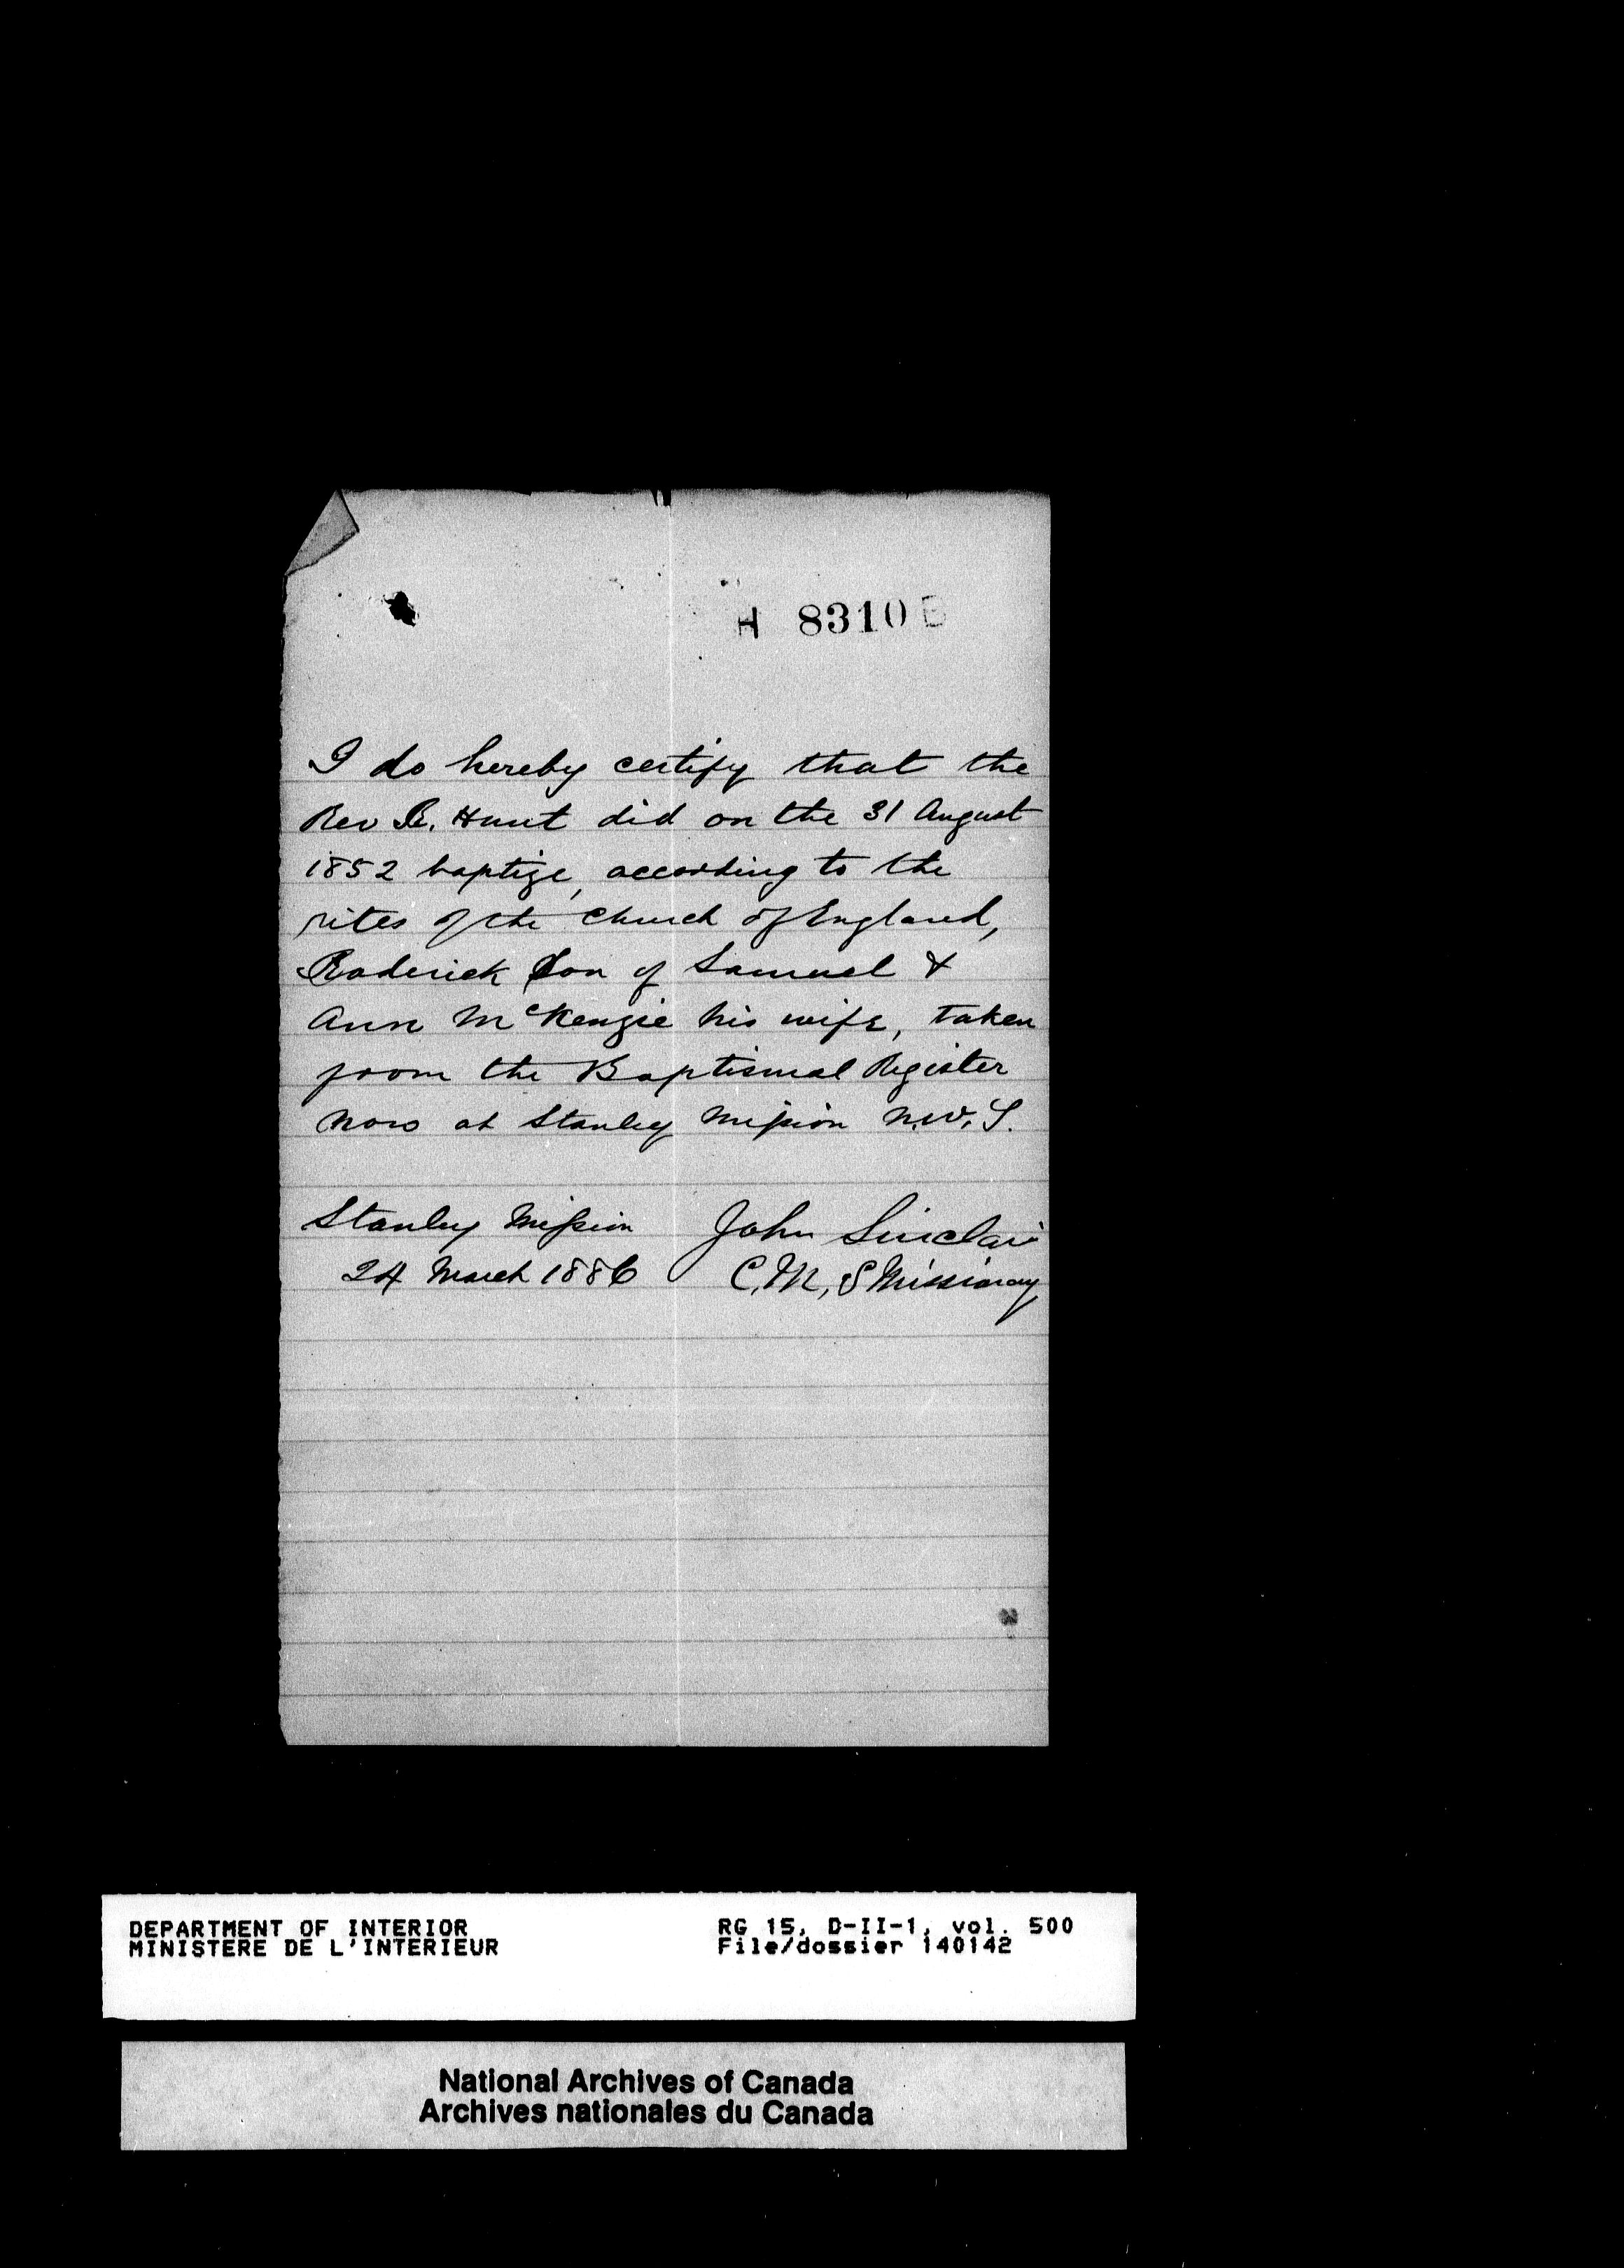 H 8310 B
I do hereby certify that the
Rev R. Hunt did on the 31 August
1852 baptize, according to the
rites of the Church of England,
Roderick Son of Samuel &
Ann McKenzie his wife, taken
from the Baptismal Register
now at Stanley Mission N.W.T.
Stanley Mission John Sinclair
24 March 1886 C.M.S Missionary
DEPARTMENT OF INTERIOR RG 15, D-II-1, vol. 500
MINISTERE DE L'INTERIEUR File/dossier 140142
National Archives of Canada
Archives nationales du Canada